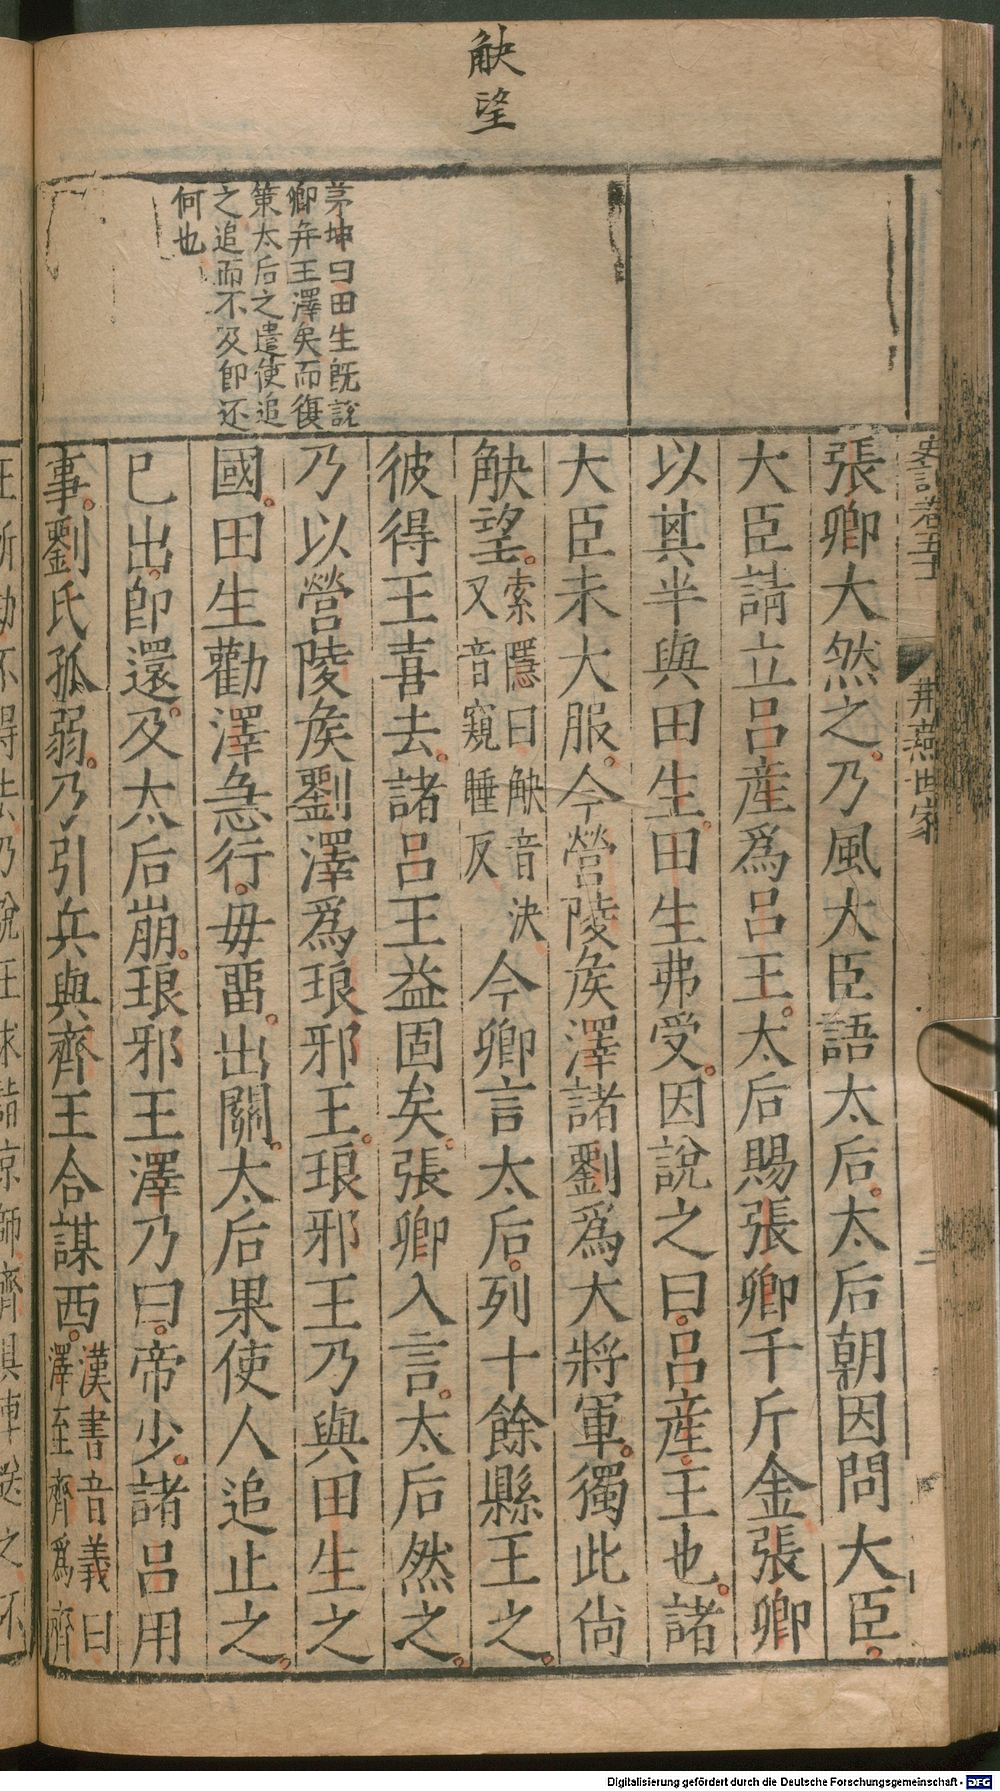 觖望
茅坤曰田生既說
卿弁王澤矣而復
策太后之遣使追
之追而不及即还
何也
史記卷五十一
荆燕世家
二
張卿大然之乃風大臣語太后太后朝因問大臣
大臣請立呂産爲呂王太后賜張卿千斤金張卿
以其半與田生田生弗受因說之曰呂産王也諸
大臣未大服今營陵矦澤諸劉爲大將軍獨此尙
觖望索隱曰觖音決又音窺睡反今卿言太后列十餘縣王之
彼得王喜去諸呂王益固矣張卿入言太后然之
乃以營陵矦劉澤爲琅邪王琅邪王乃與田生之
國田生勸澤急行毋畱出關太后果使人追止之
已出卽還及太后崩琅邪王澤乃曰帝少諸呂用
事劉氏孤弱乃引兵與齊王合謀西漢書音義曰澤至齊爲齊
王所劫不得去乃說王求詣京師齊具車送之不
Digitalisierung gefördert durch die Deutsche Forschungsgemeinschaft - DFG